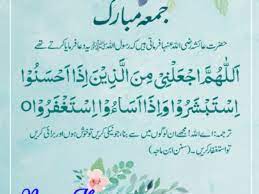 جمعہ مبارک
حضرت عائشہ رضی اللہ عنہا فرماتی ہیں کہ رسول اللہ ﷺ یہ دعا فرمایا کرتے تھے
اَللّٰهُمَّ اجْعَلْنِیْ مِنَ الَّذِیْنَ اِذَا اَحْسَنُوْا
اِسْتَبْشَرُوْا وَاِذَا اَسَاءُوْا اِسْتَغْفَرُوْا
ترجمہ: اے اللہ! مجھے ان لوگوں میں سے بنا، جو نیکی کریں تو خوش ہوں اور برائی کریں
تو استغفار کریں۔ (سنن ابن ماجہ)